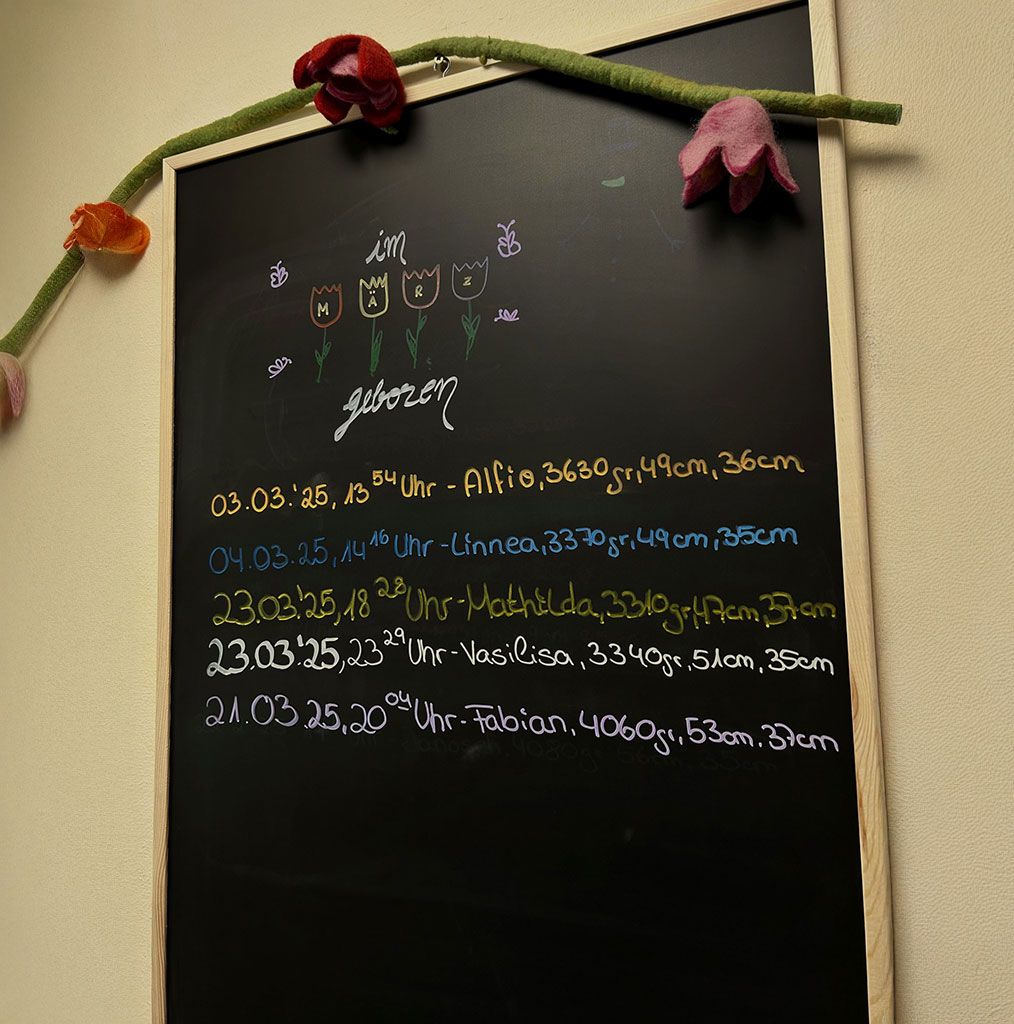 im
MÄRZ
geboren
03.03.'25, 13⁵⁴ Uhr - Alfio, 3630gr, 49cm, 36cm
04.03.25, 14¹⁶ Uhr - Linnea, 3370gr, 49cm, 35cm
23.03.'25, 18²⁸ Uhr - Mathilda, 3310gr, 47cm, 37cm
23.03.'25, 23²⁹ Uhr - Vasilisa, 3340gr, 51cm, 35cm
21.03.25, 20⁰⁴ Uhr - Fabian, 4060gr, 53cm, 37cm